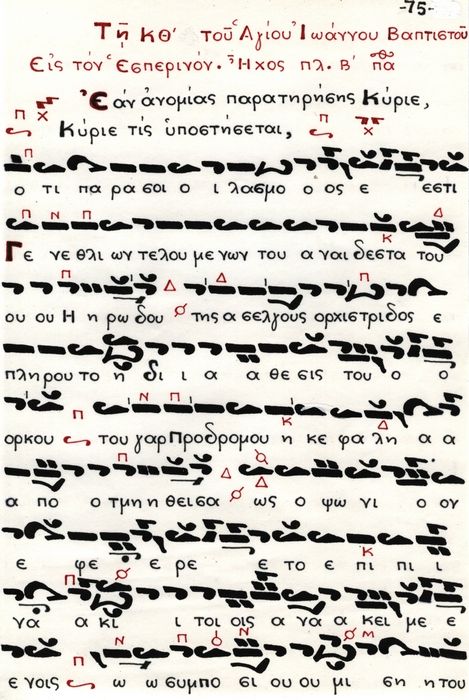 -75-
Τῇ ΚΘ' τοῦ Ἁγίου Ἰωάννου Βαπτιστοῦ
Εἰς τόν Ἑσπερινόν. Ἦχος πλ. Β' πα
Ἐάν ἀνομίας παρατηρήσης Κύριε,
Κύριε τίς ὑποστήσεται,
ο τι πα ρα σοι ο ι λασμο ο ος ε εστι
Γε νεθλι ων τελου με νων του α ναι δεστα του
ου ου Η η ρω δου της α σελγους ορχιστριδος ε
πληρου το η δι ι α α θε σις του ο ο
ορκου του γαρ Προδρομου η κε φα λη α α
α πο ο τμη η θεισα ως ο ψω νι ο ον
ε φε ε ρε ε το ε πι πι ι
να α κι ι τοι οις α να α κει με ε
ε νοις ω ω συμπο σι ου ου μι ση η του